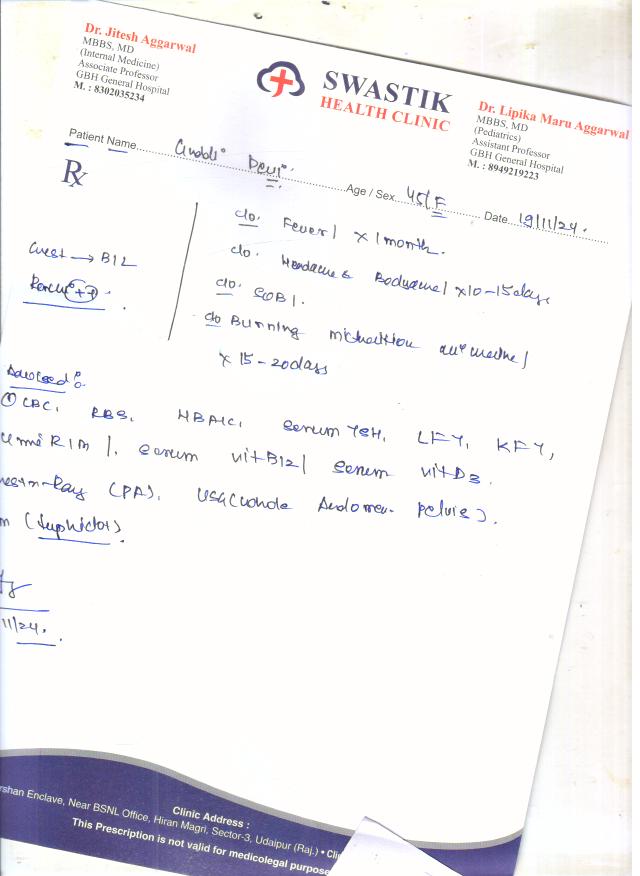 Dr. Jitesh Aggarwal
MBBS, MD
(Internal Medicine)
Associate Professor
GBH General Hospital
M. : 8302035234
SWASTIK
HEALTH CLINIC
Dr. Lipika Maru Aggarwal
MBBS, MD
(Pediatrics)
Assistant Professor
GBH General Hospital
M. : 8949219223
Patient Name Guddi Devi Age / Sex 45/F Date 19/11/24.
Rx
c/o. Fever / x 1 month.
c/o. Headache & Bodyache / x10-15days
c/o. SOB /.
c/o Burning micturition
x 15-20days
Chest → B/L
++
Advised
① CBC, RBS, HBA1C, Serum TSH, LFT, KFT,
R/M /. Serum vitB12/ Serum vitD3.
Ray (PA), USG (whole Abdomen pelvis).
11/24.
rshan Enclave, Near BSNL Office, Hiran Magri, Sector-3, Udaipur (Raj.) • Cli
Clinic Address :
This Prescription is not valid for medicolegal purpose